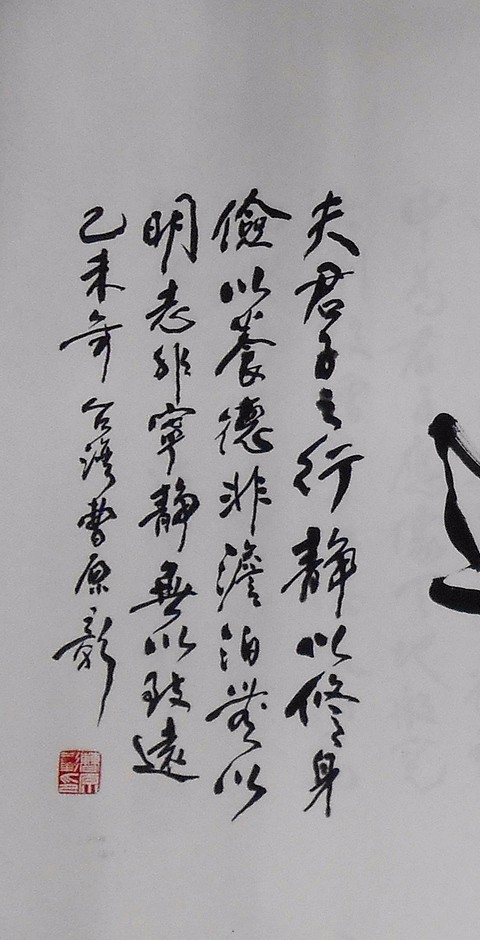 夫君子之行靜以修身
儉以養德非澹泊無以
明志非寧靜無以致遠
己未年台灣曹原彰